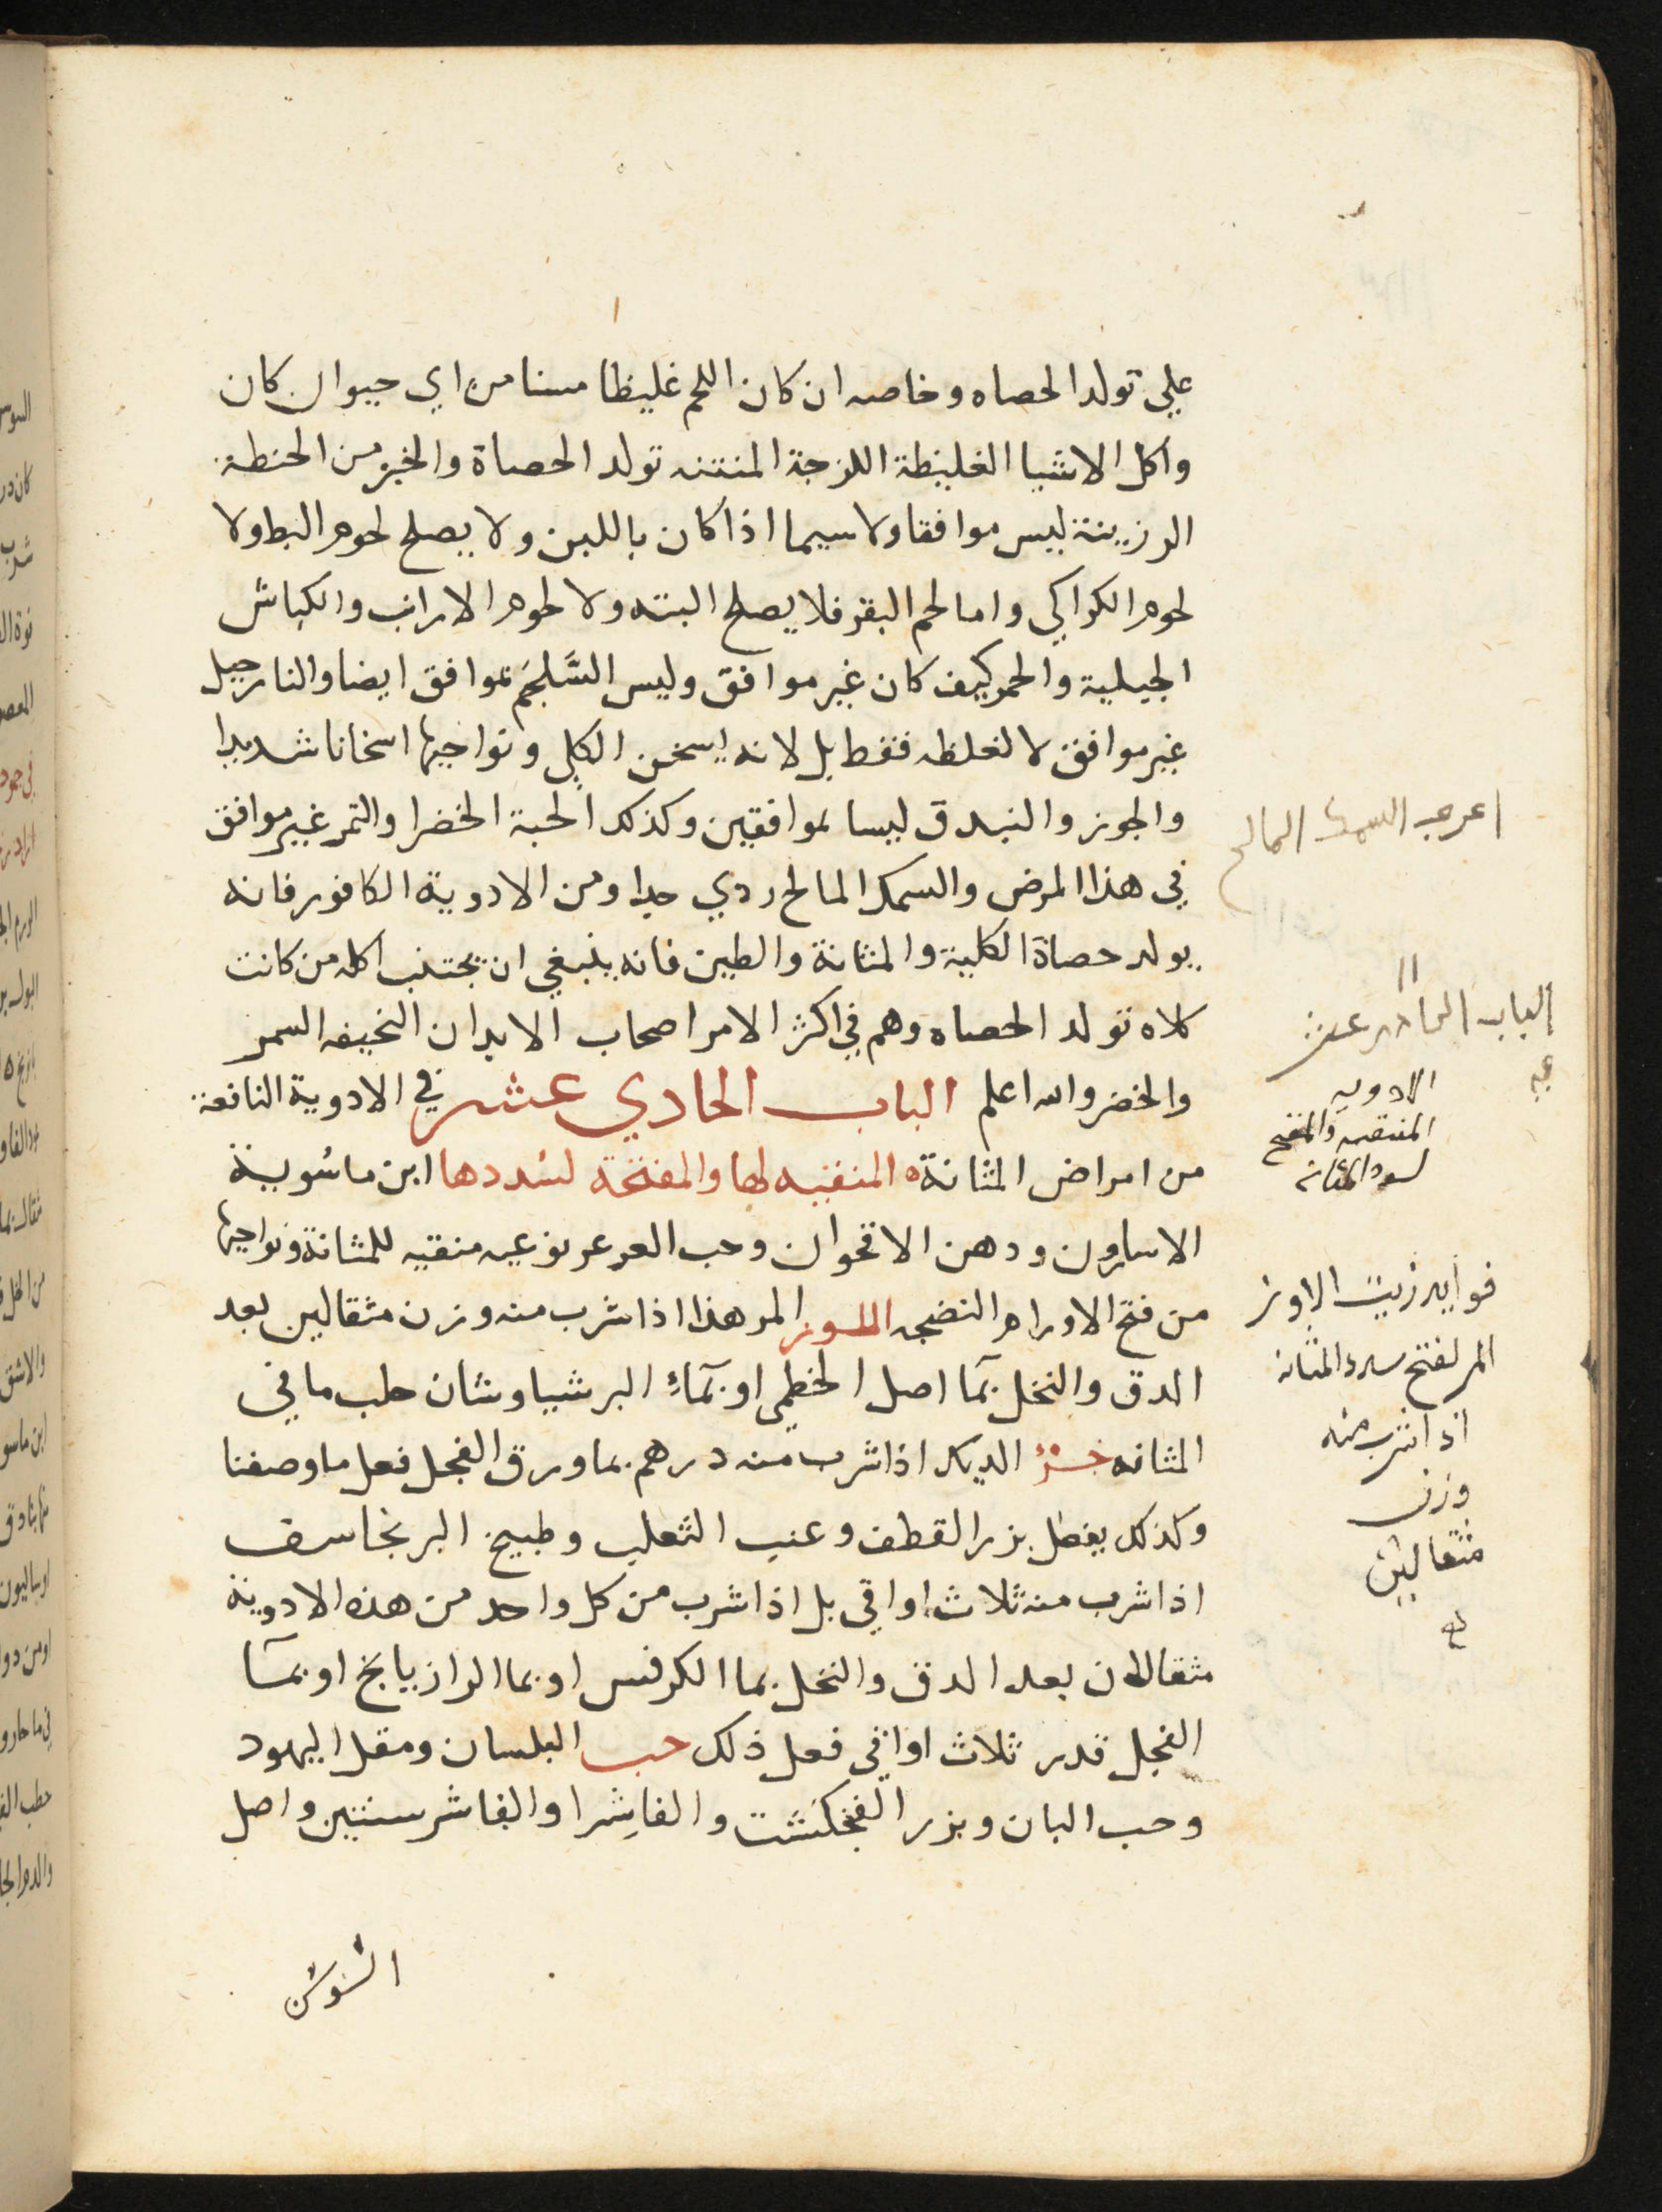 علي تولد الحصاه وخاصه ان كان اللحم غليظا مسنا من اي حيوان كان
واكل الاشيا الغليظة اللزجة المنتنه تولد الحصاة والخبز من الحنطة
الرزينة ليس موافقا ولا سيما اذا كان باللبن ولا يصلح لحوم البط ولا
لحوم الكراكي واما لحم البقر فلا يصلح البته ولا لحوم الارانب والكباش
الجبلية والخمر كيف كان غير موافق وليس السَّلجَم بموافق ايضا والنارجيل
غير موافق لا لغلظه فقط بل لانه يسخن الكلي ونواحيها اسخانا شديدا
والجوز والبندق ليسا بموافقين وكذلك الحبة الخضرا والتمر غير موافق
في هذا المرض والسمك المالح ردي جدا ومن الادوية الكافور فانه
يولد حصاة الكلية والمثانة والطين فانه ينبغي ان يجتنب اكله من كانت
كلاه تولد الحصاه وهم في اكثر الامر اصحاب الابدان النحيفه السمر
والخضر والله اعلم الباب الحادي عشر في الادوية النافعة
من امراض المثانة المنقيه لها والمفتحة لسددها ابن ماسوية
الاسارون ودهن الاقحوان وحب العرعر نوعيه منقيه للمثانة ونواحيها
من فتح الاورام النضجه اللوز المر هذا اذا شرب منه وزن مثقالين بعد
الدق والنخل بمآ اصل الخطمي او بمآء البرشياوشان جلب ما في
المثانه خرؤ الديك اذا شرب منه درهم بما ورق الفجل فعل ما وصفنا
وكذلك يفعل بزر القطف وعنب الثعلب وطبيخ البرنجاسف
اذا شرب منه ثلاث اواقي بل اذا شرب من كل واحد من هذه الادوية
مثقالان بعد الدق والنخل بما الكرفس او بما الرازيانج او بمآ
الفجل قدر ثلاث اواقي فعل ذلك حب البلسان ومقل اليهود
وحب البان وبزر الفنجكنشت والفاشِرا والفاشرستين واصل
السَوسَن
السمك المالح
الباب الحادي عشر
الادويه
المنقيه والمفتح
لسدد المثانه
فوايد زيت اللوز
المر لفتح سدد المثانه
اذا شرب منه
وزن
مثقالين